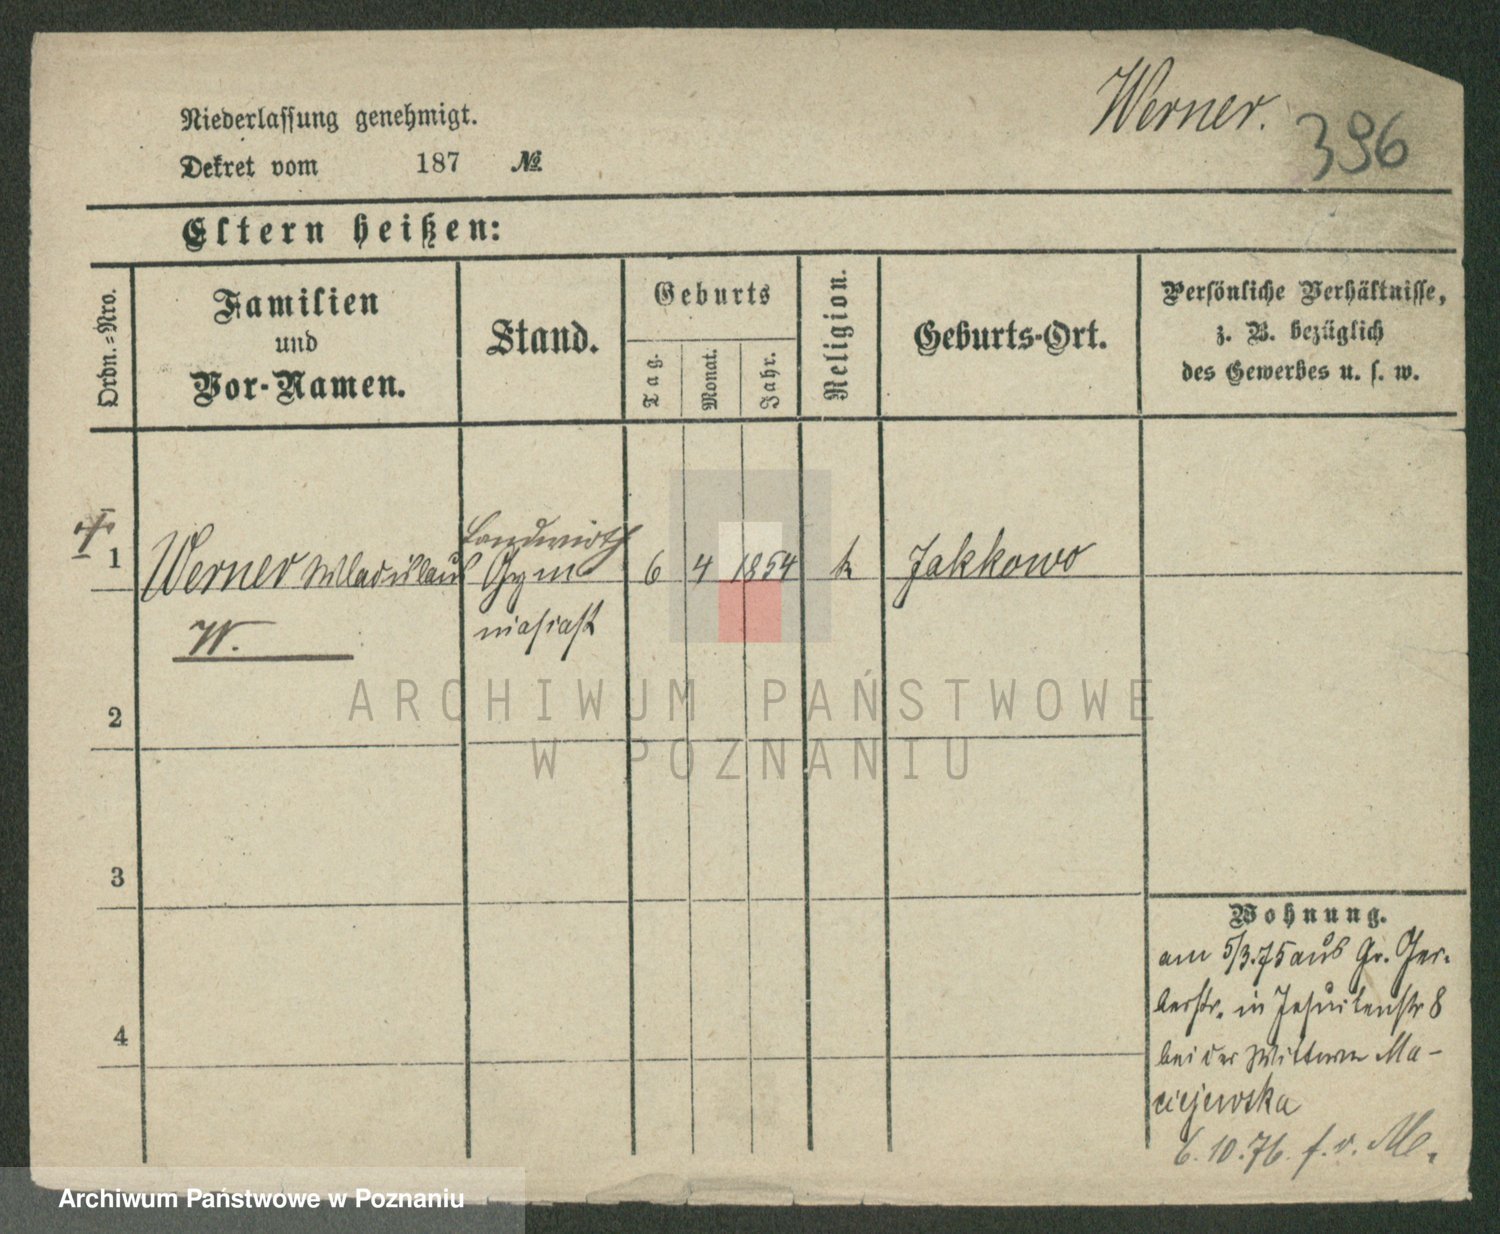 Werner.
396
Niederlassung genehmigt.
Dekret vom 187 №
Eltern heißen:
Ordn.-Nro.
Familien
und
Vor-Namen.
Stand.
Geburts
Tag.
Monat.
Jahr.
Religion.
Geburts-Ort.
Persönliche Verhältnisse,
z. B. bezüglich
des Gewerbes u. s. w.
Landwirth
1 Werner Wladislaus Gym- 6 4 1854 k Jakkowo
niasiast
W.
2
3
4
Wohnung.
am 5/3.75 aus Gr. Ger-
berstr. in Jesuitenstr 8
bei der Wittwe Ma-
ciejewska
6.10.76. f. v. M.
ARCHIWUM PAŃSTWOWE
W POZNANIU
Archiwum Państwowe w Poznaniu